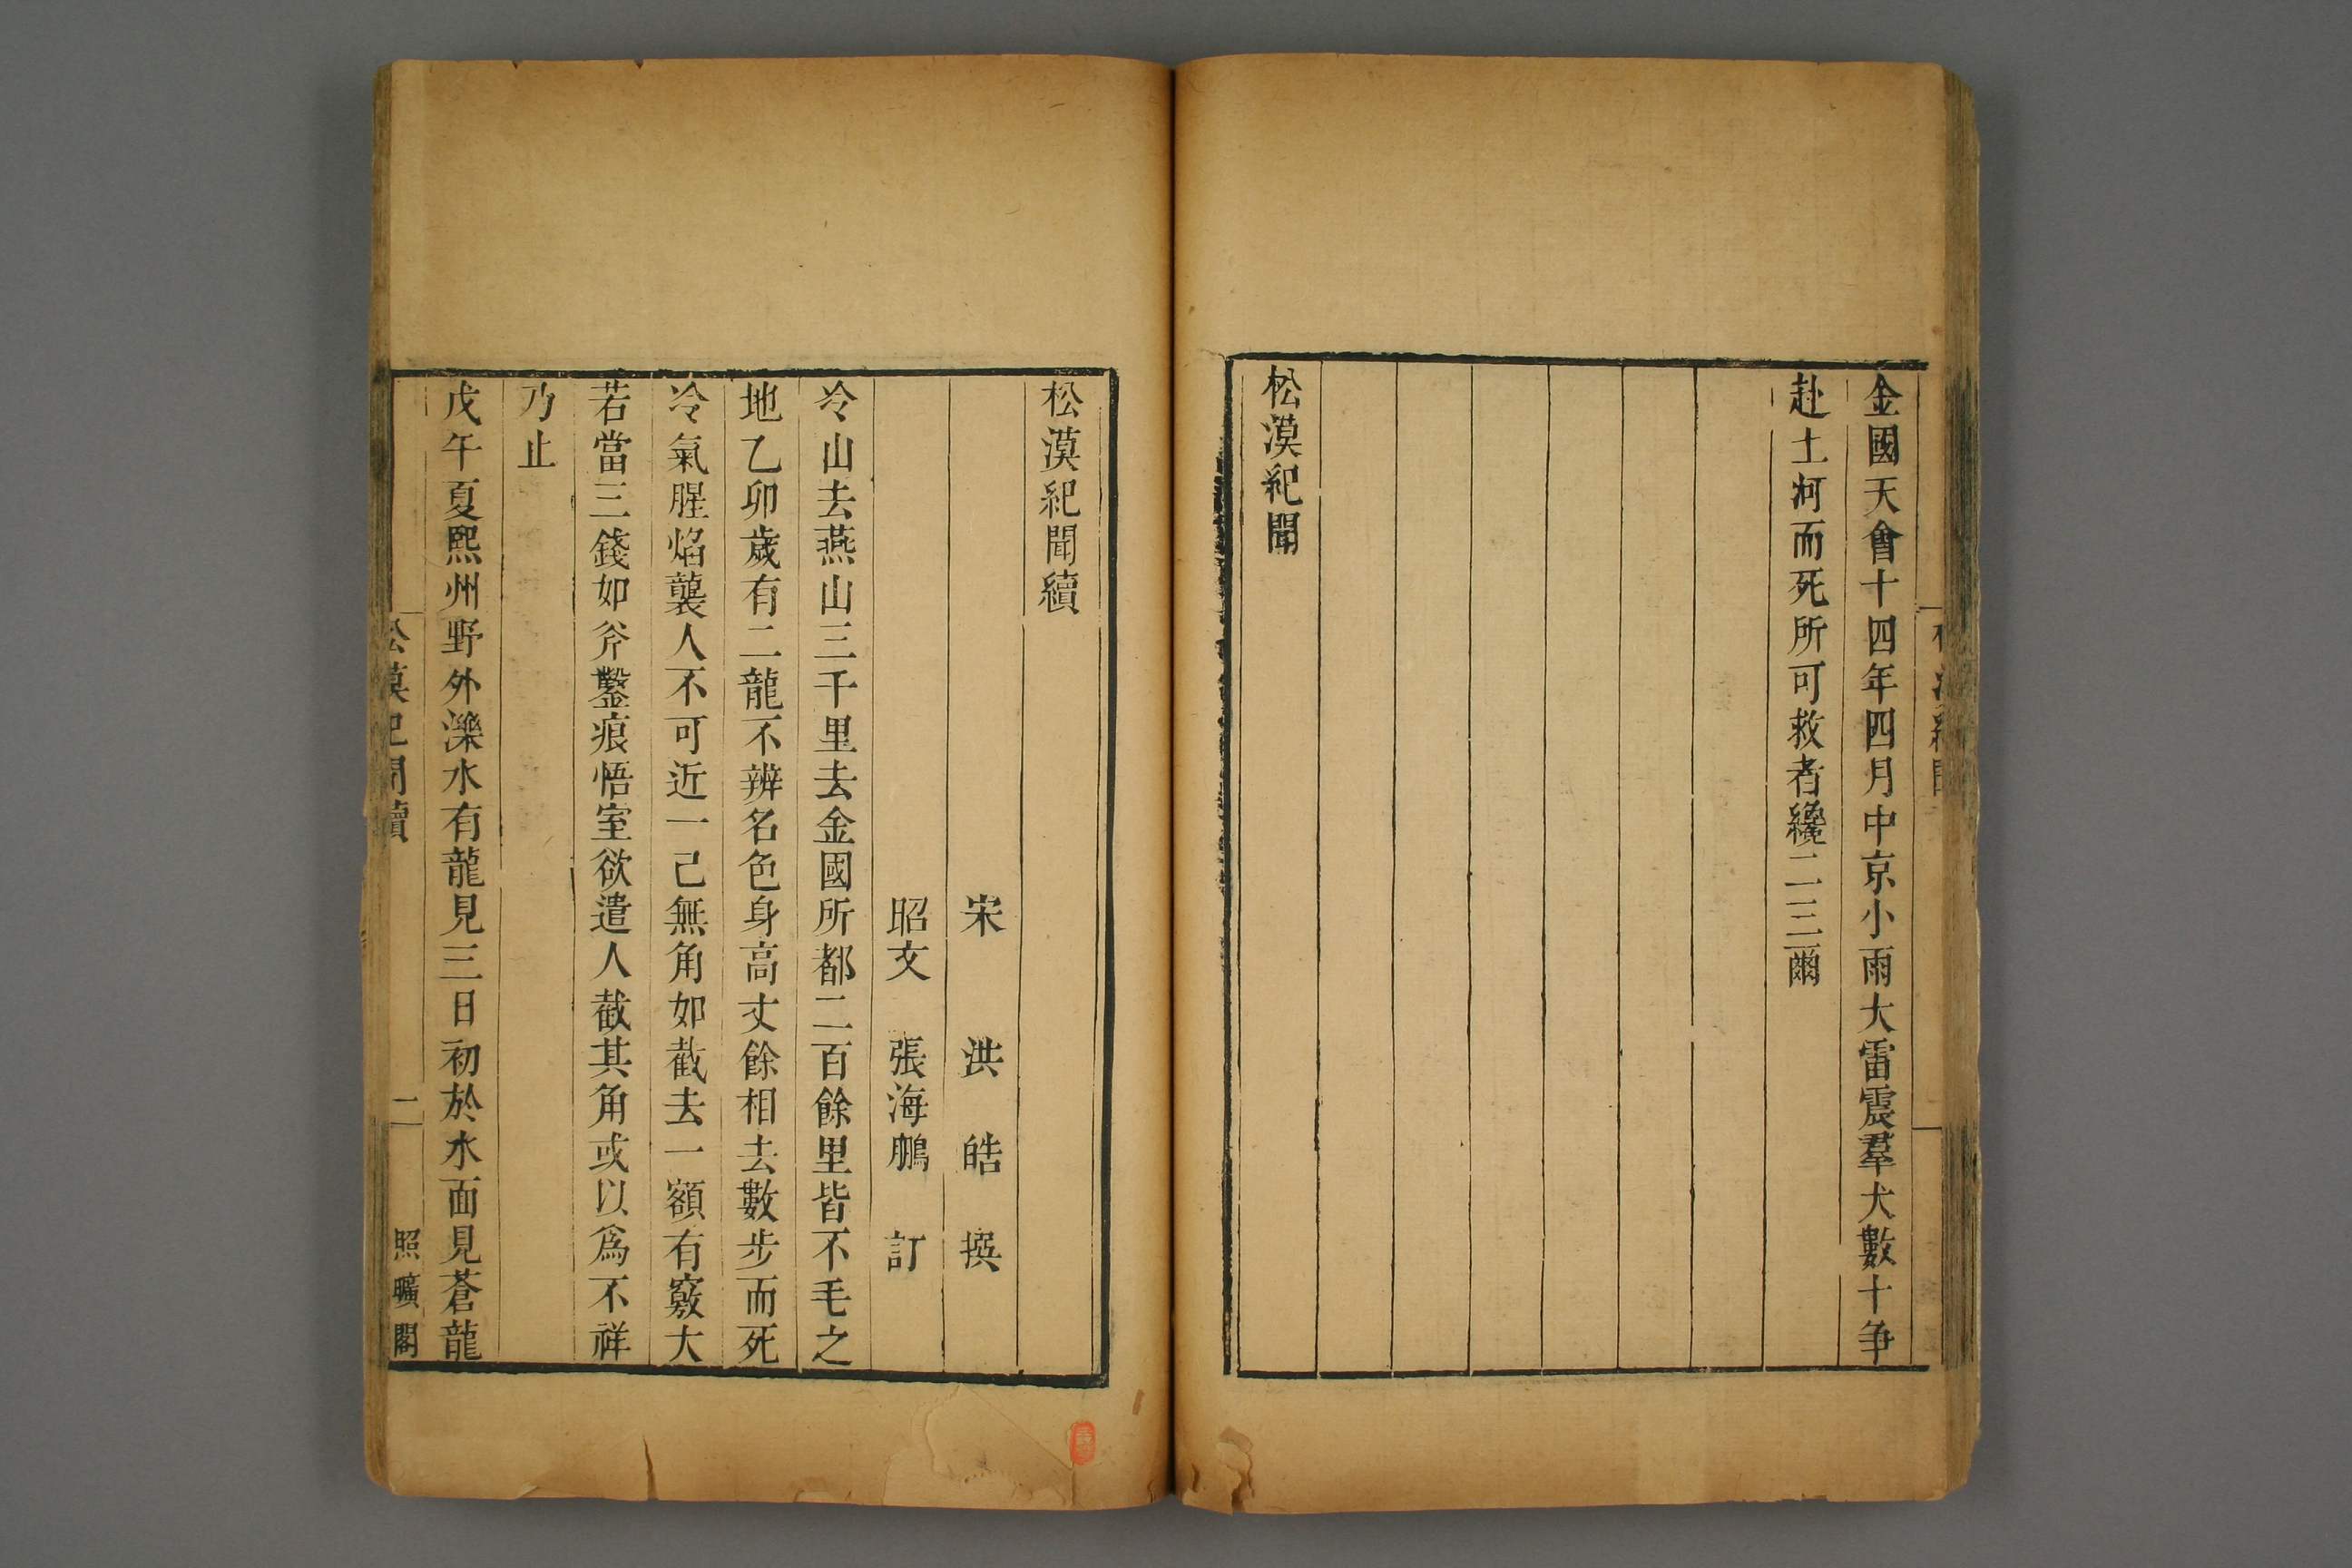 金國天會十四年四月中京小雨大雷震羣犬數十爭
赴土河而死所可救者纔二三爾
松漠紀聞
松漠紀聞續
宋 洪 皓 撰
昭文 張海鵬 訂
冷山去燕山三千里去金國所都二百餘里皆不毛之
地乙卯歲有二龍不辨名色身高丈餘相去數步而死
冷氣腥焰襲人不可近一已無角如截去一額有竅大
若當三錢如斧鑿痕悟室欲遣人截其角或以爲不祥
乃止
戊午夏熙州野外濼水有龍見三日初於水面見蒼龍
松漠紀聞續
二
照曠閣